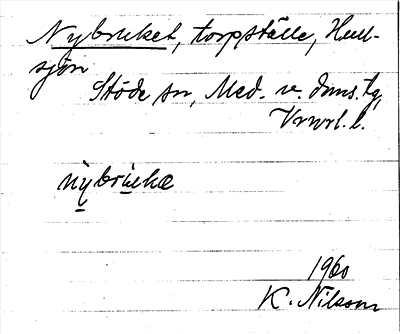 Nybruket, torpställe, Hull-
sjön
Stöde sn, Med. v. doms. tg,
Vnrl. l.
nỳbru̲kæ
1960
K. Nilsson